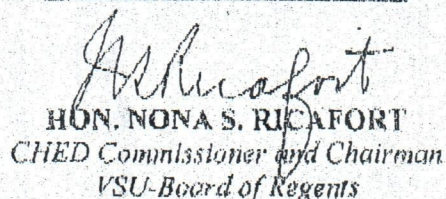 NSRicafort
HON. NONA S. RICAFORT
CHED Commissioner and Chairman
VSU-Board of Regents